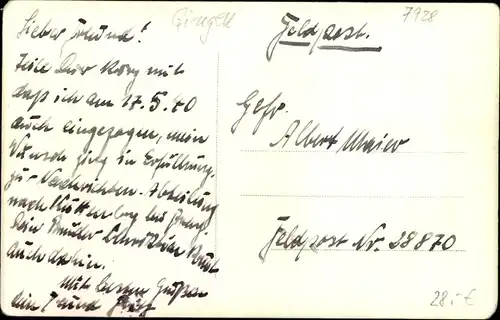 Lieber Freund!
Teile Dir kurz mit
daß ich am 17.5.40
auch eingezogen, mein
Wunsch ging in Erfüllung.
zur Nachrichten-Abteilung
nach
Dein Bruder
auch dahin.
Mit besten Grüßen
dein Freund
Giengen
7928
Feldpost.
Gefr.
Albert Maier
Feldpost Nr. 28870
28.-€